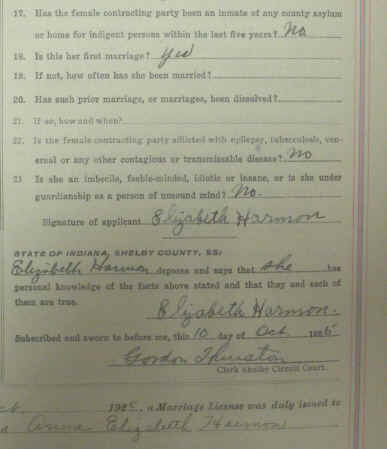 17. Has the female contracting party been an inmate of any county asylum
or home for indigent persons within the last five years? No
18. Is this her first marriage? Yes
19. If not, how often has she been married?
20. Has such prior marriage, or marriages, been dissolved?
21. If so, how and when?
22. Is the female contracting party afflicted with epilepsy, tuberculosis, ven-
ereal or any other contagious or transmissible disease? No
23 Is she an imbecile, feeble-minded, idiotic or insane, or is she under
guardianship as a person of unsound mind? No.
Signature of applicant Elizabeth Harmon
STATE OF INDIANA, SHELBY COUNTY, SS:
Elizabeth Harmon deposes and says that she has
personal knowledge of the facts above stated and that they and each of
them are true.
Elizabeth Harmon.
Subscribed and sworn to before me, this 10 day of Oct.
Gordon Thurston
Clerk Shelby Circuit Court.
192 , a Marriage License was duly issued to
Anna Elizabeth Harmon